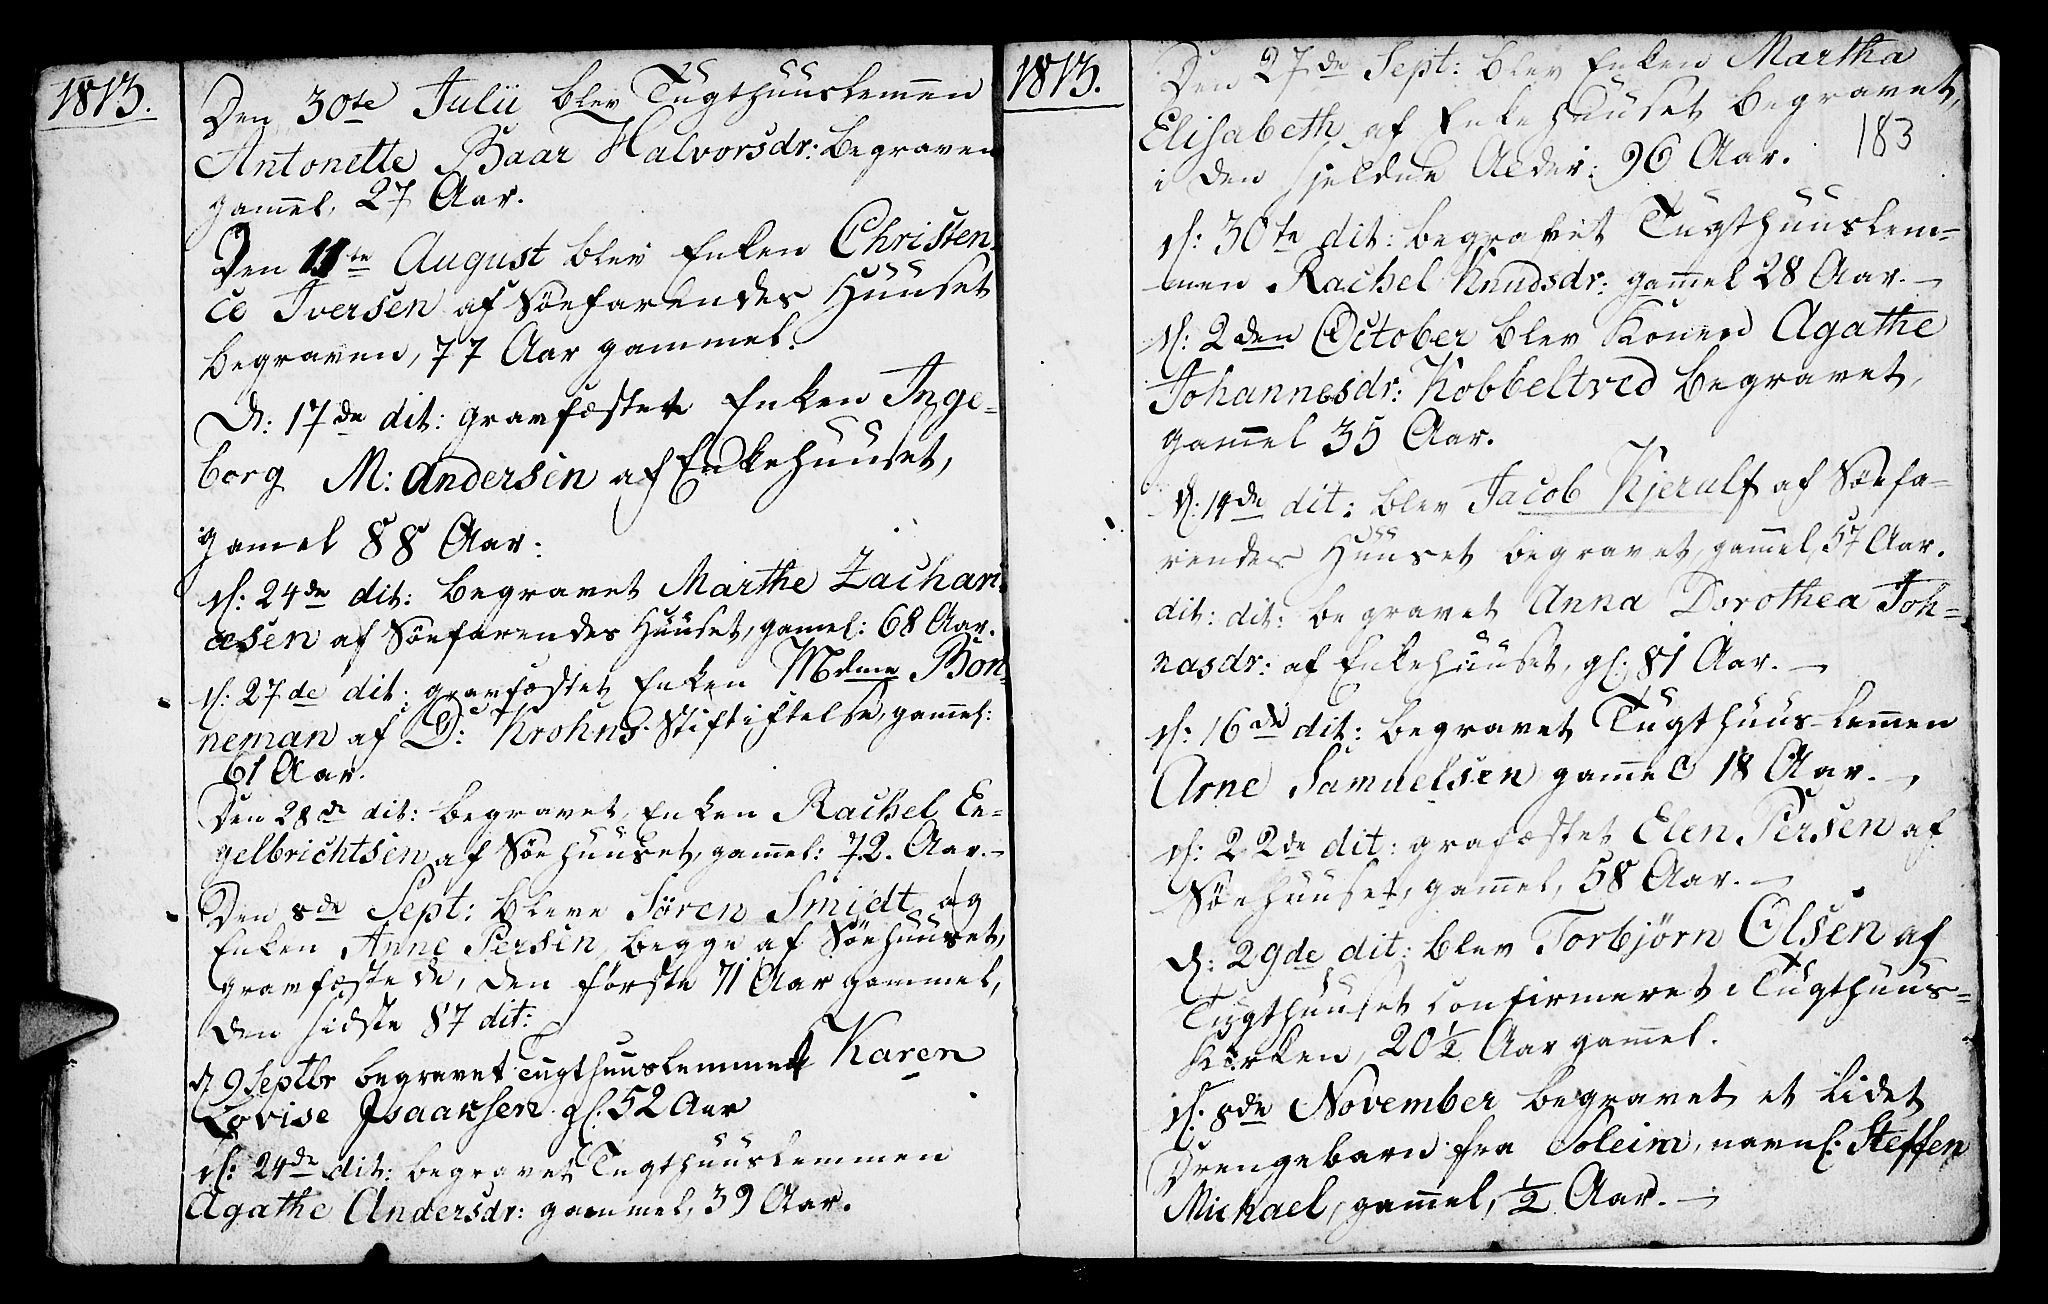 1813.
Den 30te Julii blev Tugthuuslemen
Antonette Baar Halvorsdr: begraven
gamel, 27 Aar.
Den 11te August blev Enken Christen
ce Iversen af Söefarendes Huuset
begraven, 77 Aar gammel.
D: 17de dit: gravfæstet Enken Inge-
borg M: Andersen af Enkehuuset,
gamel 88 Aar.
d: 24de dit: begravet Marthe Zachari
æsen af Söefarendes Huuset, gamel: 68 Aar.
d: 27de dit: gravfæstet Enken Mdme Bon
neman af D: Krohns Stiftelse, gamel:
61 Aar.
Den 28de dit: begravet Enken Rachel En-
gelbrichtsen af Söehuuset, gamel: 72. Aar.
Den 8de Sept: bleve Sören Smidt og
Enken Anne Persen, begge af Söehuuset,
gravfæstede, den förste 71 Aar gammel,
den sidste 87 dit:
d 9 Septbr begravet Tugthuuslemmet Karen
Lovise Isaaksen gl. 52 Aar
d: 24de dit: begravet Tugthuuslemmen
Agathe Andersdr: gammel, 39 Aar.
1813.
Den 27de Sept: blev Enken Martha
Elisabeth af Enkehuuset begravet,
i den sjeldne Alder: 96 Aar.
183
d: 30te dit: begravet Tugthuuslem-
men Rachel Knudsdr: gamel 28 Aar.
d: 2den October blev Konen Agathe
Johannesdr: Kobbeltved begravet,
gamel 35 Aar.
d: 14de dit: blev Jacob Kjerulf af Söefa-
rendes Huuset begravet, gamel, 57 Aar.
dit: dit: begravet Anna Dorothea Joh-
nasdr: af Enkehuuset, gl: 81 Aar.
d: 16de dit: begravet Tugthuus-lemen
Arne Samuelsen gamel 18 Aar.
d: 22de dit: grafæstet Elen Persen af
Söehuuset, gamel, 58 Aar.
d: 29de dit: blev Torbjörn Olsen af
Tugthuuset confirmeret i Tugthuus-
Kirken, 20 1/2 Aar gamel.
d: 8de November begravet et lidet
Drengebarn fra Soleim, navnl: Steffen
Michael, gamel, 1/2 Aar.